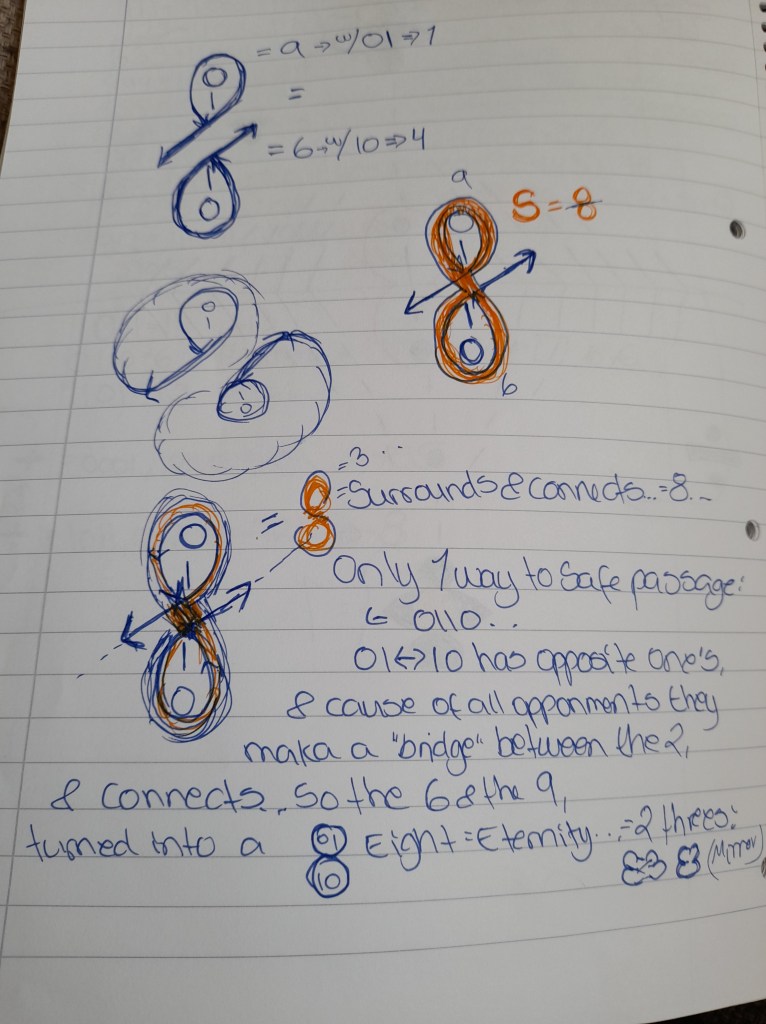 = 9 → w/01 ⇒ 1
0
1
=
= 6 → w/10 ⇒ 4
1
0
a
S = 8
0
1
1
0
b
0
1
1
0
= 3 ..
= Surrounds & connects.. = 8..
0
1
=
1
0
Only 1 way to safe passage:
0110..
01↔10 has opposite one's,
& cause of all opponments they
maka a "bridge" between the 2,
& connects. So the 6 & the 9,
turned into a 01 10 Eight = Eternity... = 2 threes:
(Mirror)